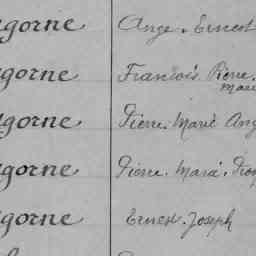 gorne Ange. Ernest
gorne Francois. Pierre.
Marie
gorne Pierre. Marie Ang
gorne Pierre. Marie.
gorne Ernest. Joseph